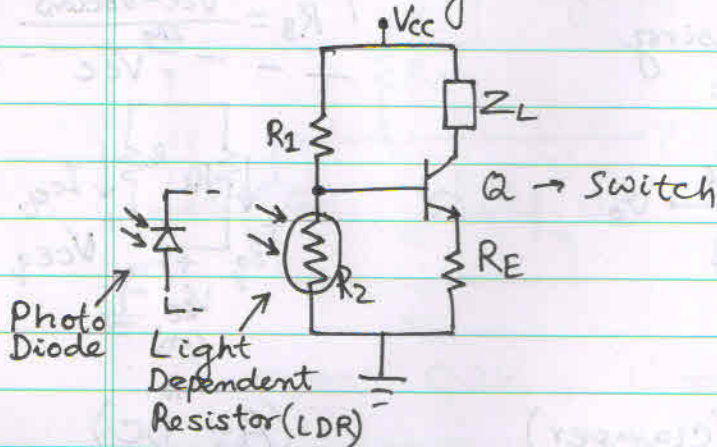 Vcc
R1
ZL
Q → Switch
R2
RE
Photo
Diode
Light
Dependent
Resistor (LDR)